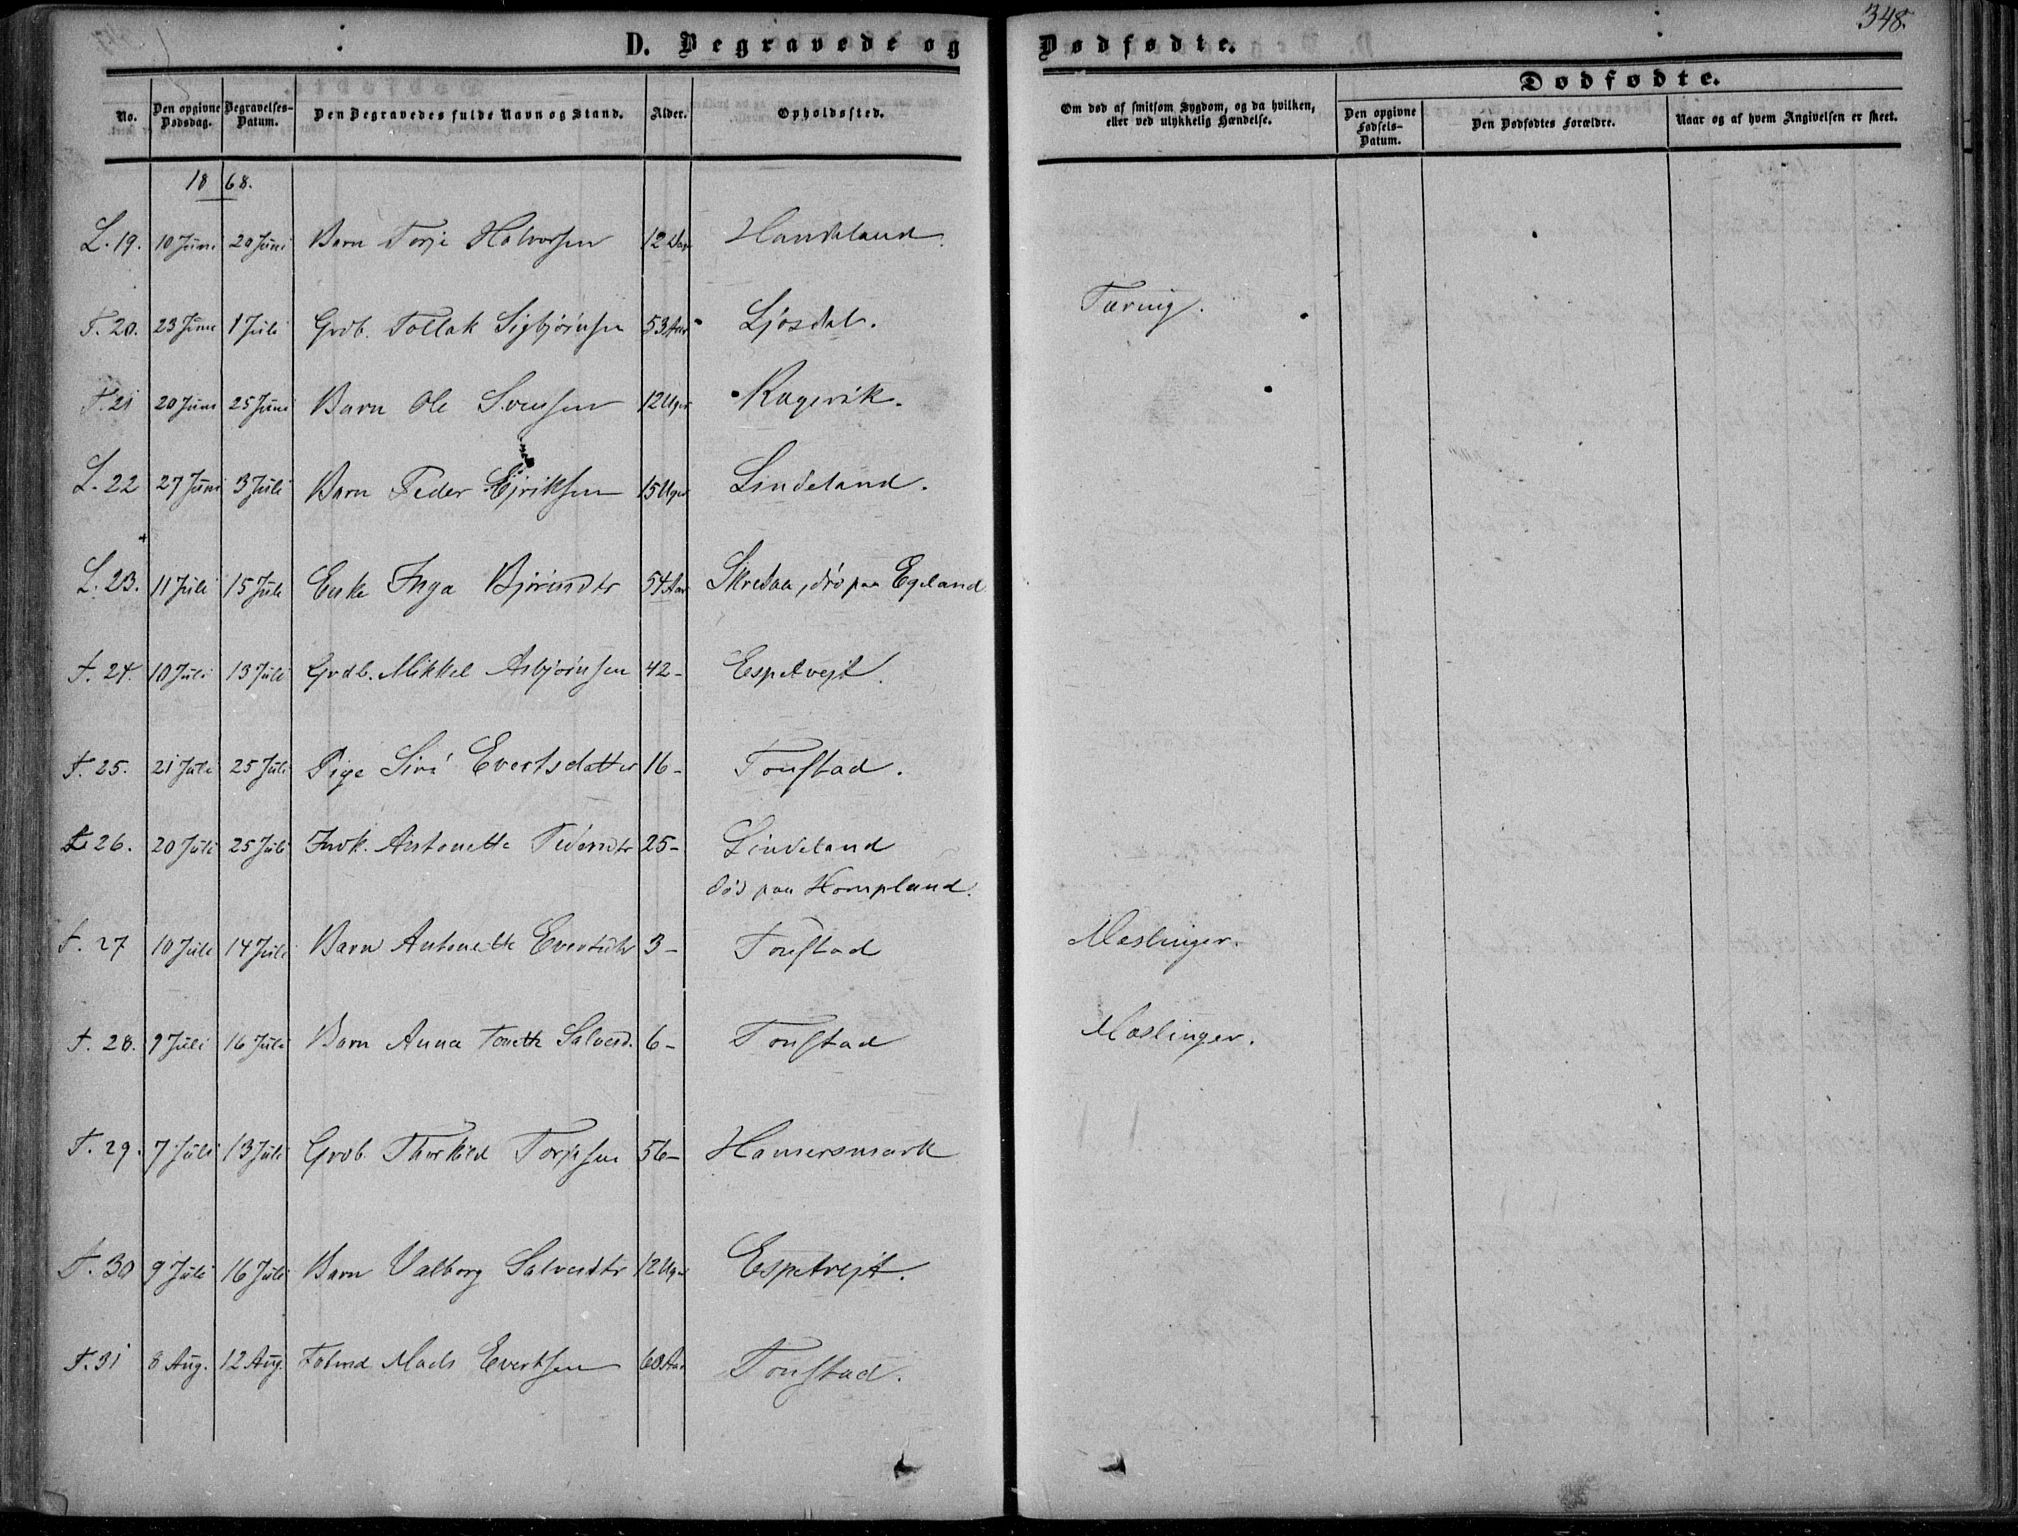 348.
D. Begravede og Dødfødte.
No. | Den opgivne Dødsdag. | Begravelses-Datum. | Den Begravedes fulde Navn og Stand. | Alder. | Opholdssted. | Om død af smitsom Sygdom, og da hvilken, eller ved ulykkelig Hændelse. | Dødfødte. | Den opgivne Fødsels-Datum. | Den Dødfødtes Forældre. | Naar og af hvem Angivelsen er skeet.
1868.
L. 19. 10 Juni 20 Juni Barn Torje Halvorsen 12 Dag Handeland.
T. 20. 23 Juni 1 Juli Grdb. Tollak Sigbjørnsen 53 Aar Ljosdal. Tæring.
T. 21 20 Juni 25 Juni Barn Ole Svensen 12 Uger Ragevik.
L. 22 27 Juni 3 Juli Barn Peder Ejriksen 15 Uger Lindeland.
L. 23. 11 Juli 15 Juli Enke Inga Bjørnsdtr 54 Aar Skredaa, død paa Egeland
T. 24. 10 Juli 13 Juli Grdb. Mikkel Asbjørnsen 42 - Espetvejt.
T. 25. 21 Juli 25 Juli Pige Siri Evertsdatter 16 - Tonstad.
L 26. 20 Juli 25 Juli Indk. Antonette Pedersdtr 25 - Lindeland
død paa Hompland.
T. 27 10 Juli 14 Juli Barn Antonette Evertsdtr 3 - Tonstad Meslinger.
T. 28. 9 Juli 16 Juli Barn Anna Tonette Salvesd. 6 - Tonstad Meslinger.
T. 29. 7 Juli 13 Juli Grdb. Thorkild Torjesen 56 - Hamersmark
T. 30 9 Juli 16 Juli Barn Valborg Salvesdtr 12 Uger Espetvejt.
T. 31 8 Aug. 12 Aug. Mads Evertsen 60 Aar Tonstad.